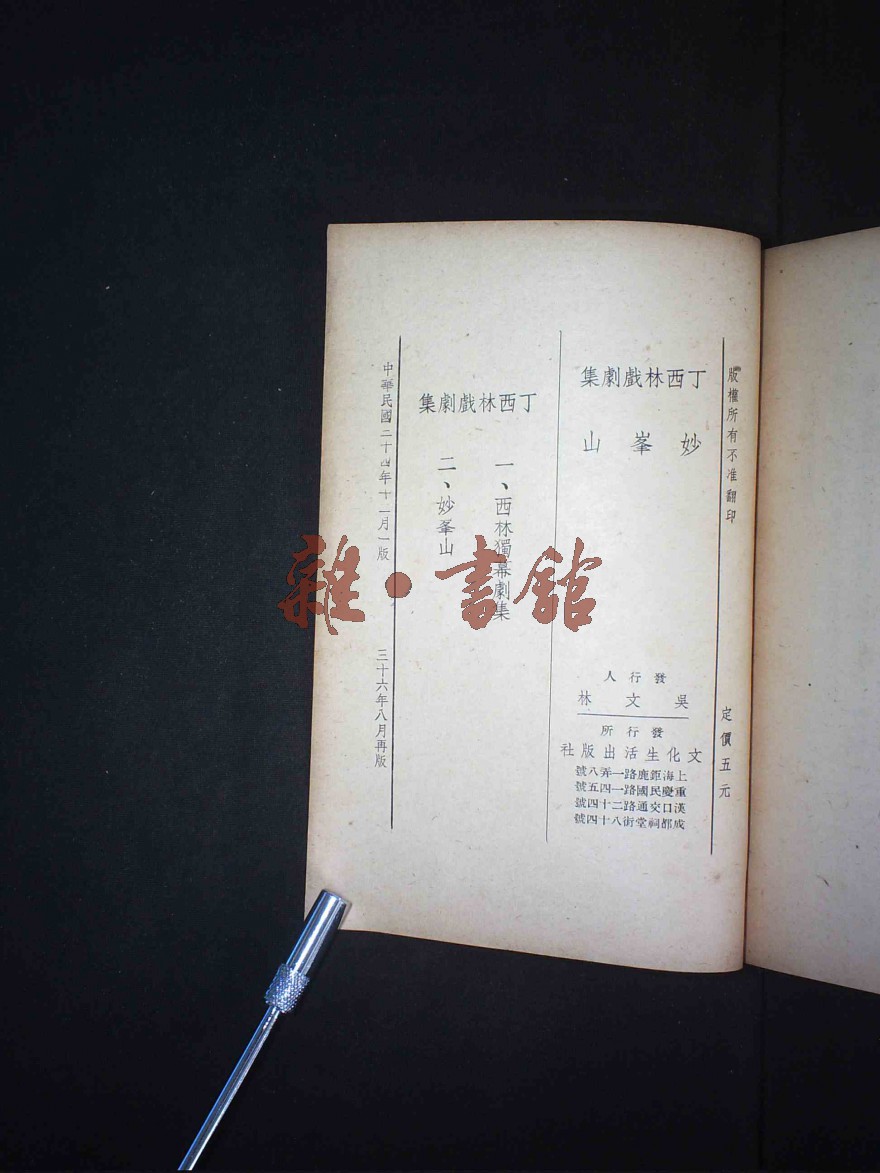 版權所有不准翻印
定價五元
丁西林戲劇集
妙峯山
發行人
吳文林
發行所
文化生活出版社
上海鉅鹿路一弄八號
重慶民國路一四五號
漢口交通路二十四號
成都祠堂街八十四號
丁西林戲劇集
一、西林獨幕劇集
二、妙峯山
中華民國三十四年十一月一版
三十六年八月再版
雜·書館